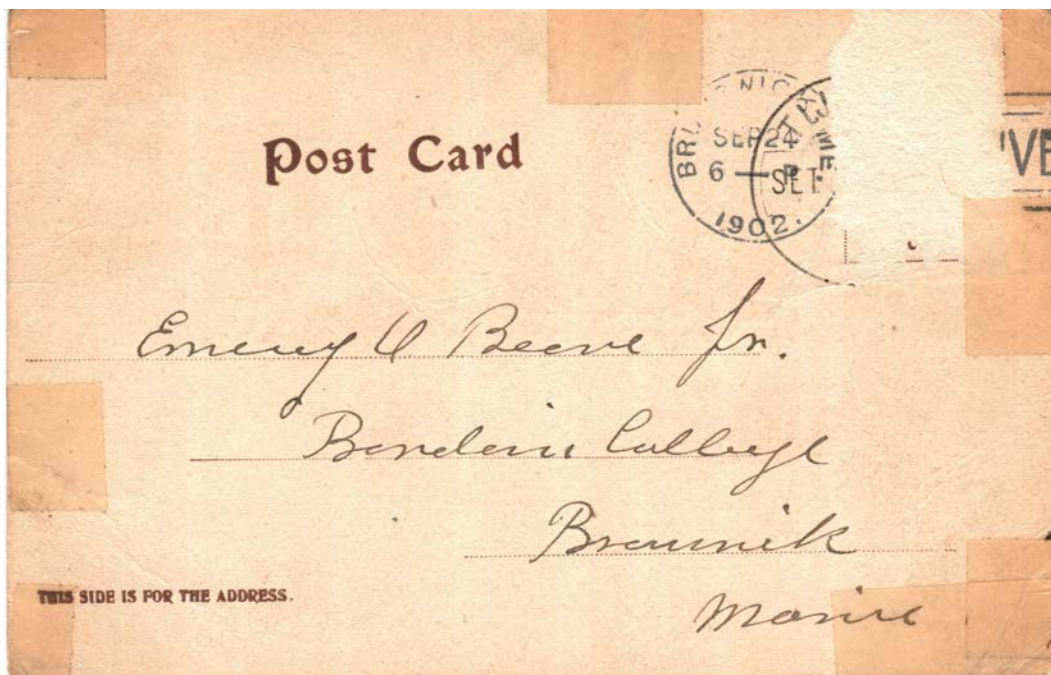 Post Card
SEP 24
6 — P
1902.
SET
IVE
Emery O Beane Jr.
Bowdoin College
Brunswick
Maine
THIS SIDE IS FOR THE ADDRESS.